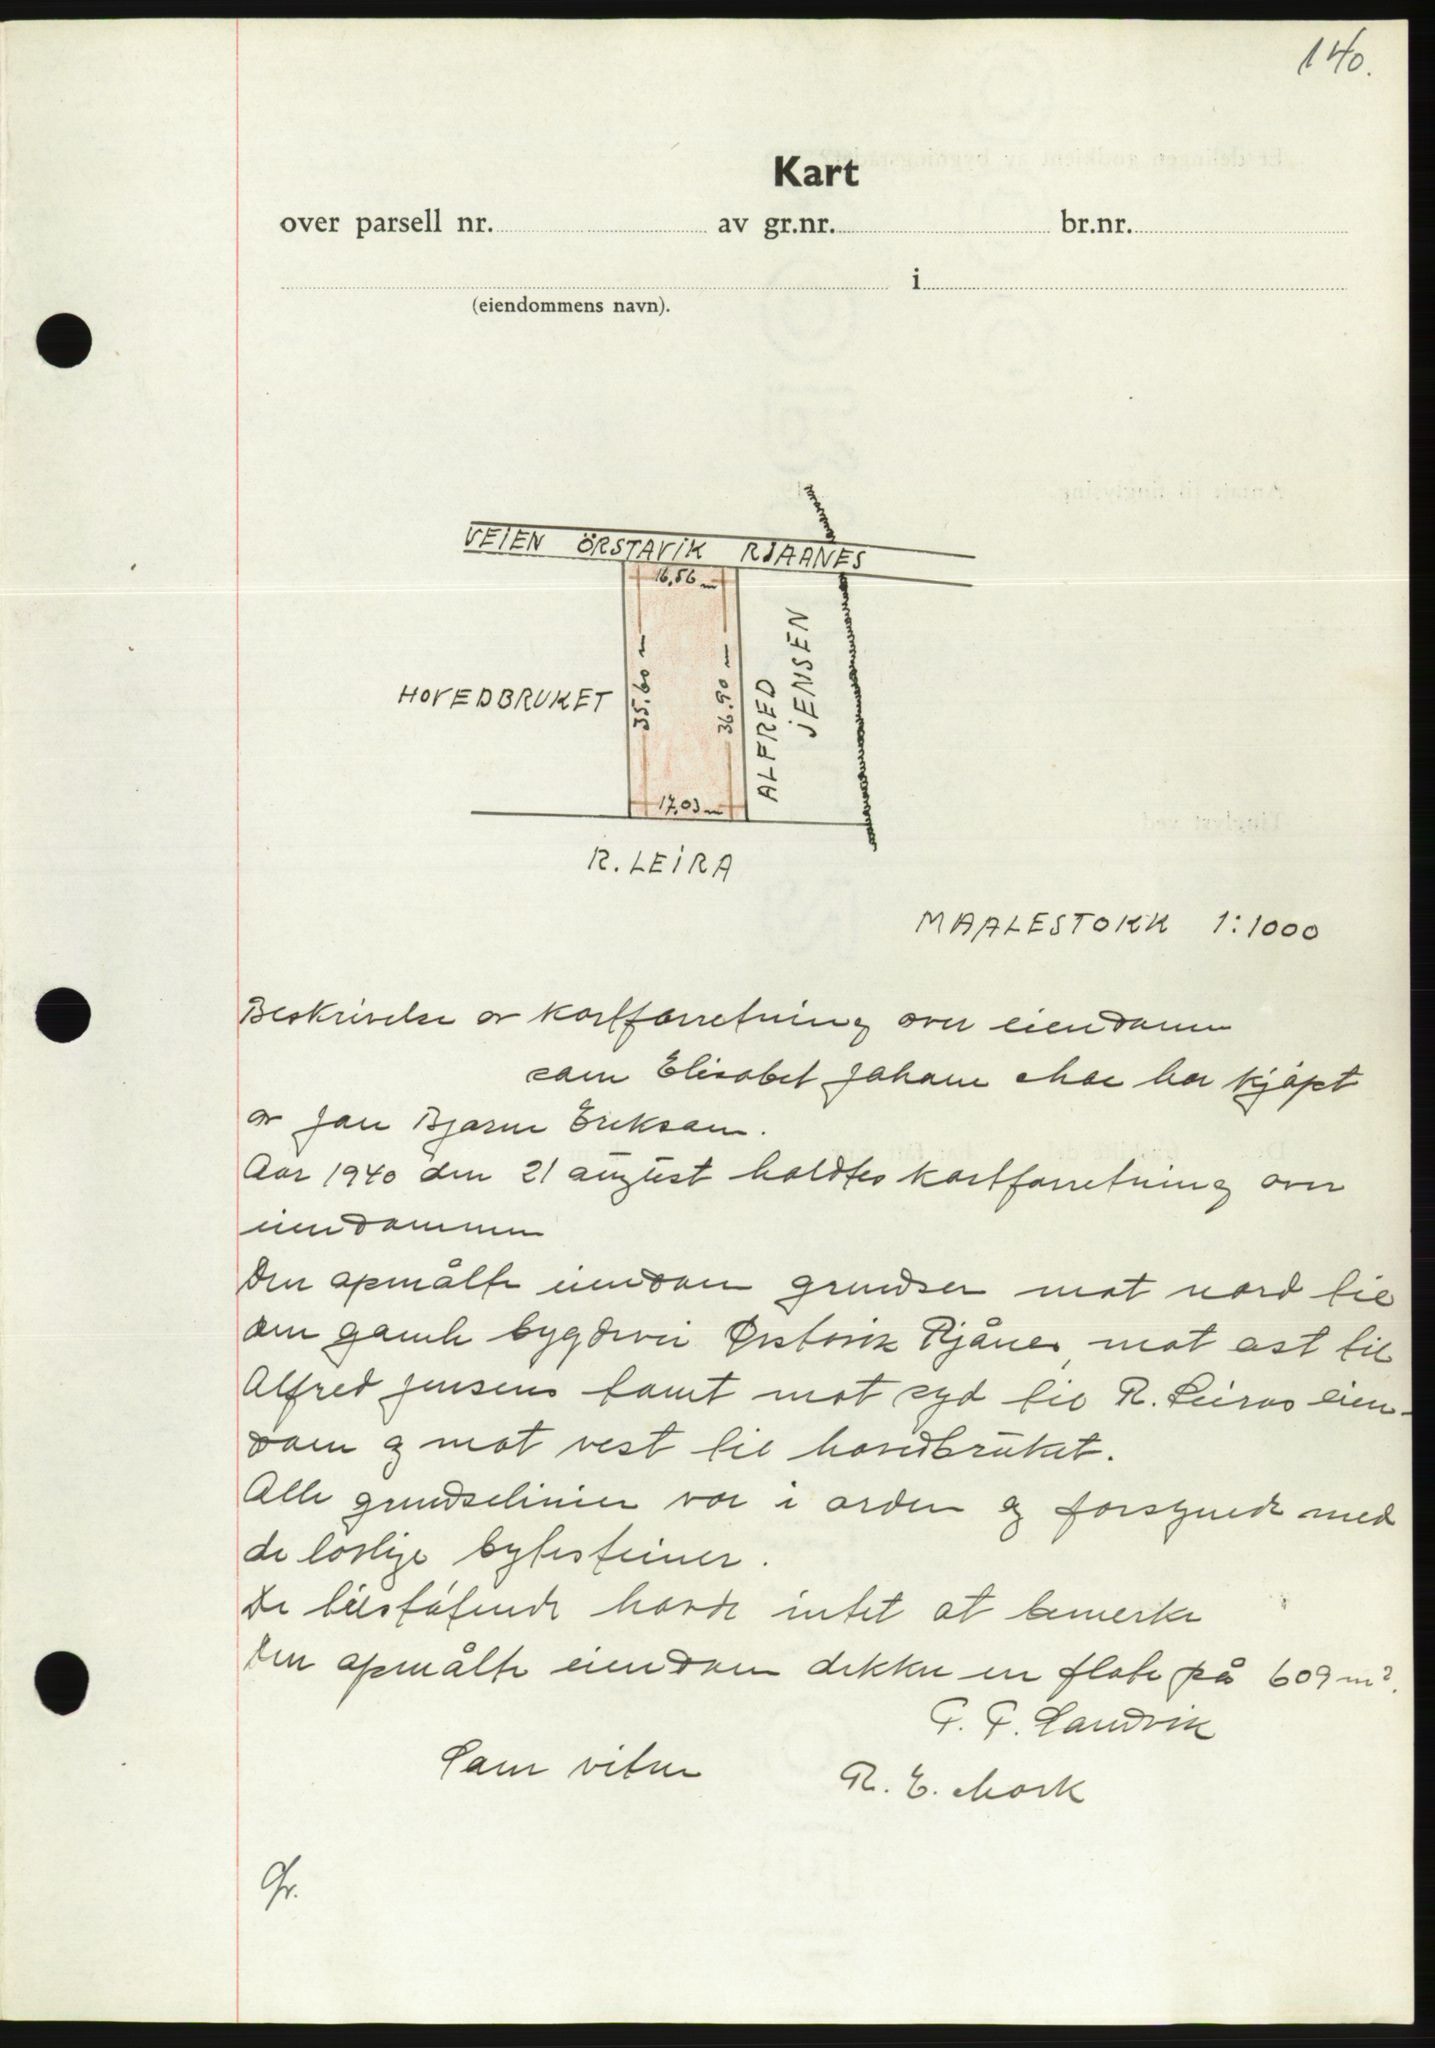 140.
Kart
over parsell nr. av gr.nr. br.nr.
i
(eiendommens navn).
VEIEN ÖRSTAVIK RJAANES
16,56 m
35,60 m
36,90 m
17,03 m
HOVEDBRUKET
ALFRED
JENSEN
R. LEIRA
MAALESTOKK 1:1000
Beskrivelse av kartforretning over eiendom
som Elisabet Johane Moe har kjøpt
av Jon Bjarne Eriksen.
Aar 1940 den 21 august holdtes kartforretning over
eiendommen
Den opmålte eiendom grendser mot nord til
den gamle bygdevei Ørstavik Rjånes, mot øst til
Alfred Jensens tomt mot syd til R. Leiras eien-
dom og mot vest til hovedbruket.
Alle grendselinier var i orden og forsynede med
de lovlige bytesteiner.
De tilstøtende havde intet at bemerke
Den opmålte eiendom dekker en flate på 609 m².
Sandvik
Som vitne
R. E. Mork